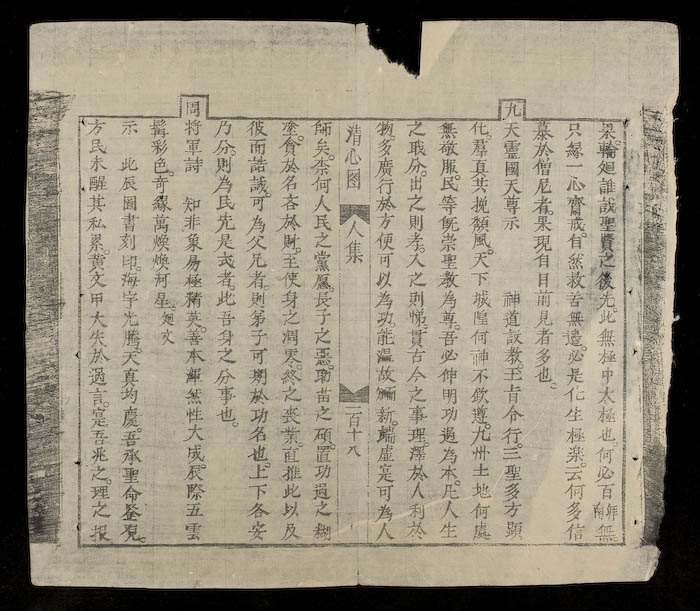 果。輪廻誰哉。聖賢之後先。此無極中太極也。何必百年。南無。
只緣一心齋戒。自然救苦無邊。必是化生極樂。云何多信
慕於僧尼者。果現有目前見者多也。
九天靈國天尊示 神道設教。王旨令行。三聖多方顯
化。羣真共挽頹風。天下城隍何神不欽遵。九州土地何處
無敬服。民等旣崇聖教為尊。吾必伸明功過為本。凡人生
之職分。出之則孝。入之則悌。貫古今之事理。澤於人利於
物。多廣行於方便。可以為功。能溫故知新。端虛寔可為人
清心图 人集 二百十八
師矣。柰何人民之黨愿。長子之惡。助苗之碩。置功過之糊
塗。貪於名吝於財。至使身之凋哭。終之喪業。直推此以及
彼而誥誡。可為父兄者。則弟子可期於功名也。上下各安
乃分。則為民先是哉者。此吾身之分事也。
司將軍詩 知非象易極精英。善本輝然性大成。辰際五雲
觀彩色。奇緣萬燦煥河星。廻文
示 此辰圖書刻印。海字光騰。天真均慶。吾承聖命鑒視。
方民未醒其私累。黄文甲大失於過言。寔吾兆之。理之報